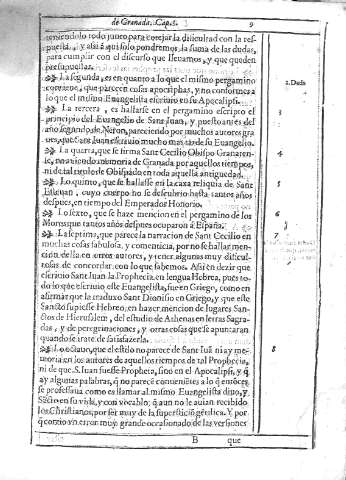 de Granada. Cap. 1. 9
teniendolo todo junto para cotejar la dificultad con la res-
puesta, y assi aqui solo pondremos la suma de las dudas,
para cumplir con el discurso que lleuamos, y que queden
presupuestas.
La segunda, es en quanto a lo que el mismo pergamino
contiene, que parecen cosas apochriphas, y no conformes a
lo que el mismo Euangelista escriuio en su Apocalipsi.
2. Duda
La tercera, es hallarse en el pergamino escripto el
principio del Euangelio de Sant Juan, y puesto antes del
año segundo de Neron, pareciendo por muchos autores gra
ues, que Sant Juan escriuio mucho mas tarde su Euangelio.
3
La quarta, que se firma Sant Cecilio Obispo Granaren-
se, no auiendo memoria de Granada por aquellos tiempos,
ni de tal titulo de Obispado en toda aquella antiguedad.
4
Lo quinto, que se hallasse en la caxa reliquia de Sant
Esteuan, cuyo cuerpo no se descubrio hasta tantos años
despues, en tiempo del Emperador Honorio.
5
Lo sexto, que se haze mencion en el pergamino de los
Moros, que tantos años despues ocuparon a España.
6
La septima, que parece la narracion de Sant Cecilio en
muchas cosas fabulosa, y comenticia, por no se hallar men-
cion della en otros autores, y tener algunas muy dificul-
tosas de concordar con lo que sabemos. Assi en dezir que
escriuio Sant Juan la Prophecia, en lengua Hebrea, pues to-
do lo que escriuio este Euangelista, fue en Griego, como en
afirmar que la traduxo Sant Dionisio en Griego, y que este
Sancto supiesse Hebreo, en hazer mencion de lugares San-
ctos de Hierusalem, del estudio de Athenas en letras Sagra-
das, y de peregrinaciones, y otras cosas que se apuntaran
quando se trate de satisfazerla.
7
Lo octauo, que el estilo no parece de Sant Juã ni ay me-
moria en los autores de aquellos tiempos de tal Prophecia,
ni de que S. Juan fuesse Propheta, sino en el Apocalipsi, y q̃
ay algunas palabras, q̃ no parecẽ conuenientes a lo q̃ entõces
se professaua como es llamar al mismo Euangelista diuo, y
Sãcto en su vida, y con vocablo, q̃ aun no le auian recibido
los Christianos, por ser muy de la supersticiõ gẽtilica. Y, por
q̃ corrio vn error muy grande ocasionado de las versiones
8
B que